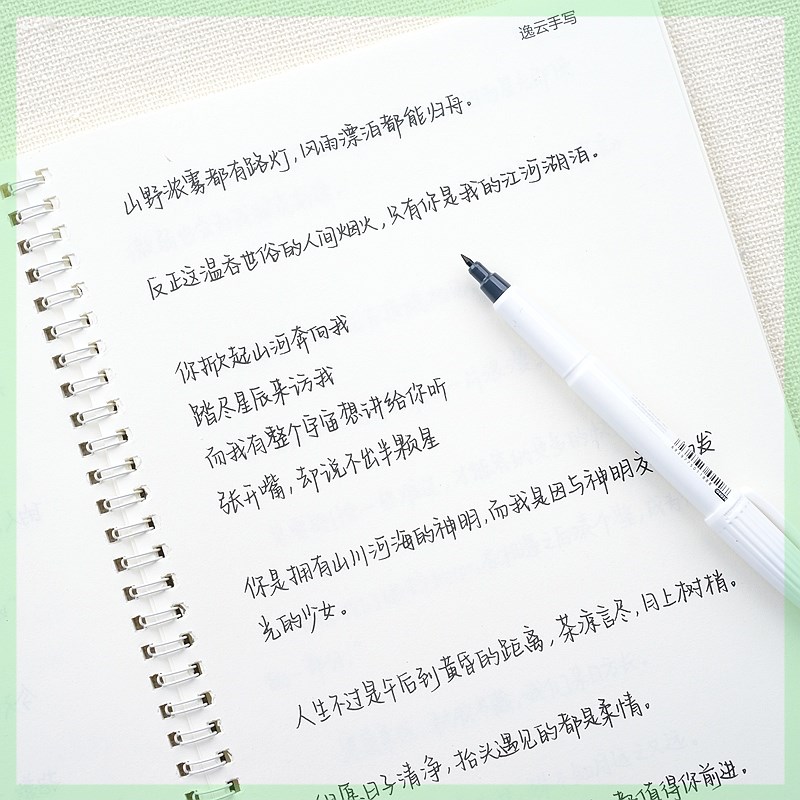 逸云手写
山野浓雾都有路灯,风雨漂泊都能归舟。
反正这温吞世俗的人间烟火,只有你是我的江河湖泊。
你掀起山河奔向我
踏尽星辰来访我
而我有整个宇宙想讲给你听
张开嘴,却说不出半颗星
你是拥有山川河海的神明,而我是因与神明交 发
光的少女。
人生不过是午后到黄昏的距离,茶凉言尽,月上树梢。
愿日子清净,抬头遇见的都是柔情。
都值得你前进。